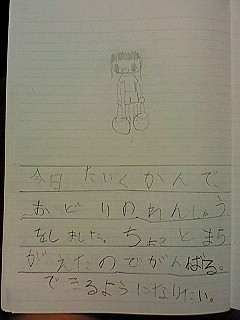 今日 たいくかんで、
おどりの、れんしゅう
をしました。ちょっとまち
がえたのでがんばる。
できるようになりたい。